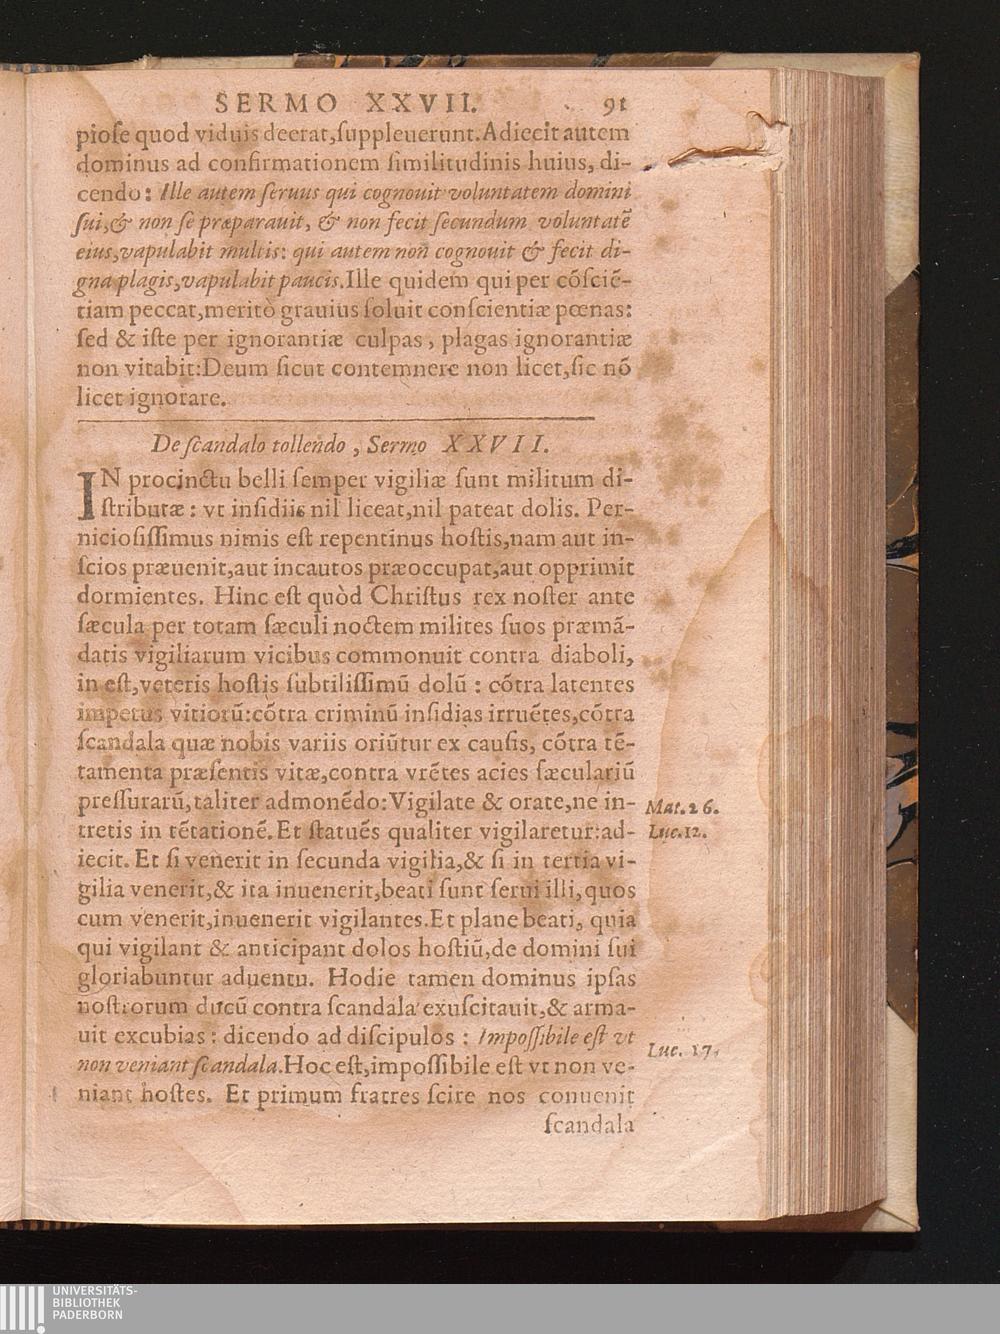 SERMO XXVII. 91
pioſe quod viduis deerat,ſuppleuerunt.Adiecit autem
dominus ad confirmationem ſimilitudinis huius, di-
cendo: Ille autem ſeruus qui cognouit voluntatem domini
ſui,& non ſe præparauit, & non fecit ſecundum voluntatē
eius,vapulabit multis: qui autem non cognouit & fecit di-
gna plagis,vapulabit paucis.Ille quidem qui per cōſciē-
tiam peccat,meritò grauius ſoluit conſcientiæ pœnas:
ſed & iſte per ignorantiæ culpas, plagas ignorantiæ
non vitabit:Deum ſicut contemnere non licet,ſic nō
licet ignorare.
De ſcandalo tollendo, Sermo XXVII.
IN procinctu belli ſemper vigiliæ ſunt militum di-
ſtributæ: vt inſidiis nil liceat,nil pateat dolis. Per-
nicioſiſſimus nimis eſt repentinus hoſtis,nam aut in-
ſcios præuenit,aut incautos præoccupat,aut opprimit
dormientes. Hinc eſt quòd Chriſtus rex noſter ante
ſæcula per totam ſæculi noctem milites ſuos præmā-
datis vigiliarum vicibus commonuit contra diaboli,
in eſt,veteris hoſtis ſubtiliſſimū dolū: cōtra latentes
impetus vitiorū:cōtra criminū inſidias irruētes,cōtra
ſcandala quæ nobis variis oriūtur ex cauſis, cōtra tē-
tamenta præſentis vitæ,contra vrētes acies ſæculariū
preſſurarū,taliter admonēdo:Vigilate & orate,ne in-
tretis in tētationē.Et ſtatuēs qualiter vigilaretur:ad-
iecit. Et ſi venerit in ſecunda vigilia,& ſi in tertia vi-
gilia venerit,& ita inuenerit,beati ſunt ſerui illi,quos
cum venerit,inuenerit vigilantes.Et plane beati, quia
qui vigilant & anticipant dolos hoſtiū,de domini ſui
gloriabuntur aduentu. Hodie tamen dominus ipſas
noſtrorum ducū contra ſcandala exuſcitauit,& arma-
uit excubias: dicendo ad diſcipulos: Impoſſibile eſt vt
non veniant ſcandala.Hoc eſt,impoſſibile eſt vt non ve-
niant hoſtes. Et primum fratres ſcire nos conuenit
ſcandala
Mat.26.
Luc.12.
Luc. 17.
UNIVERSITÄTS-
BIBLIOTHEK
PADERBORN